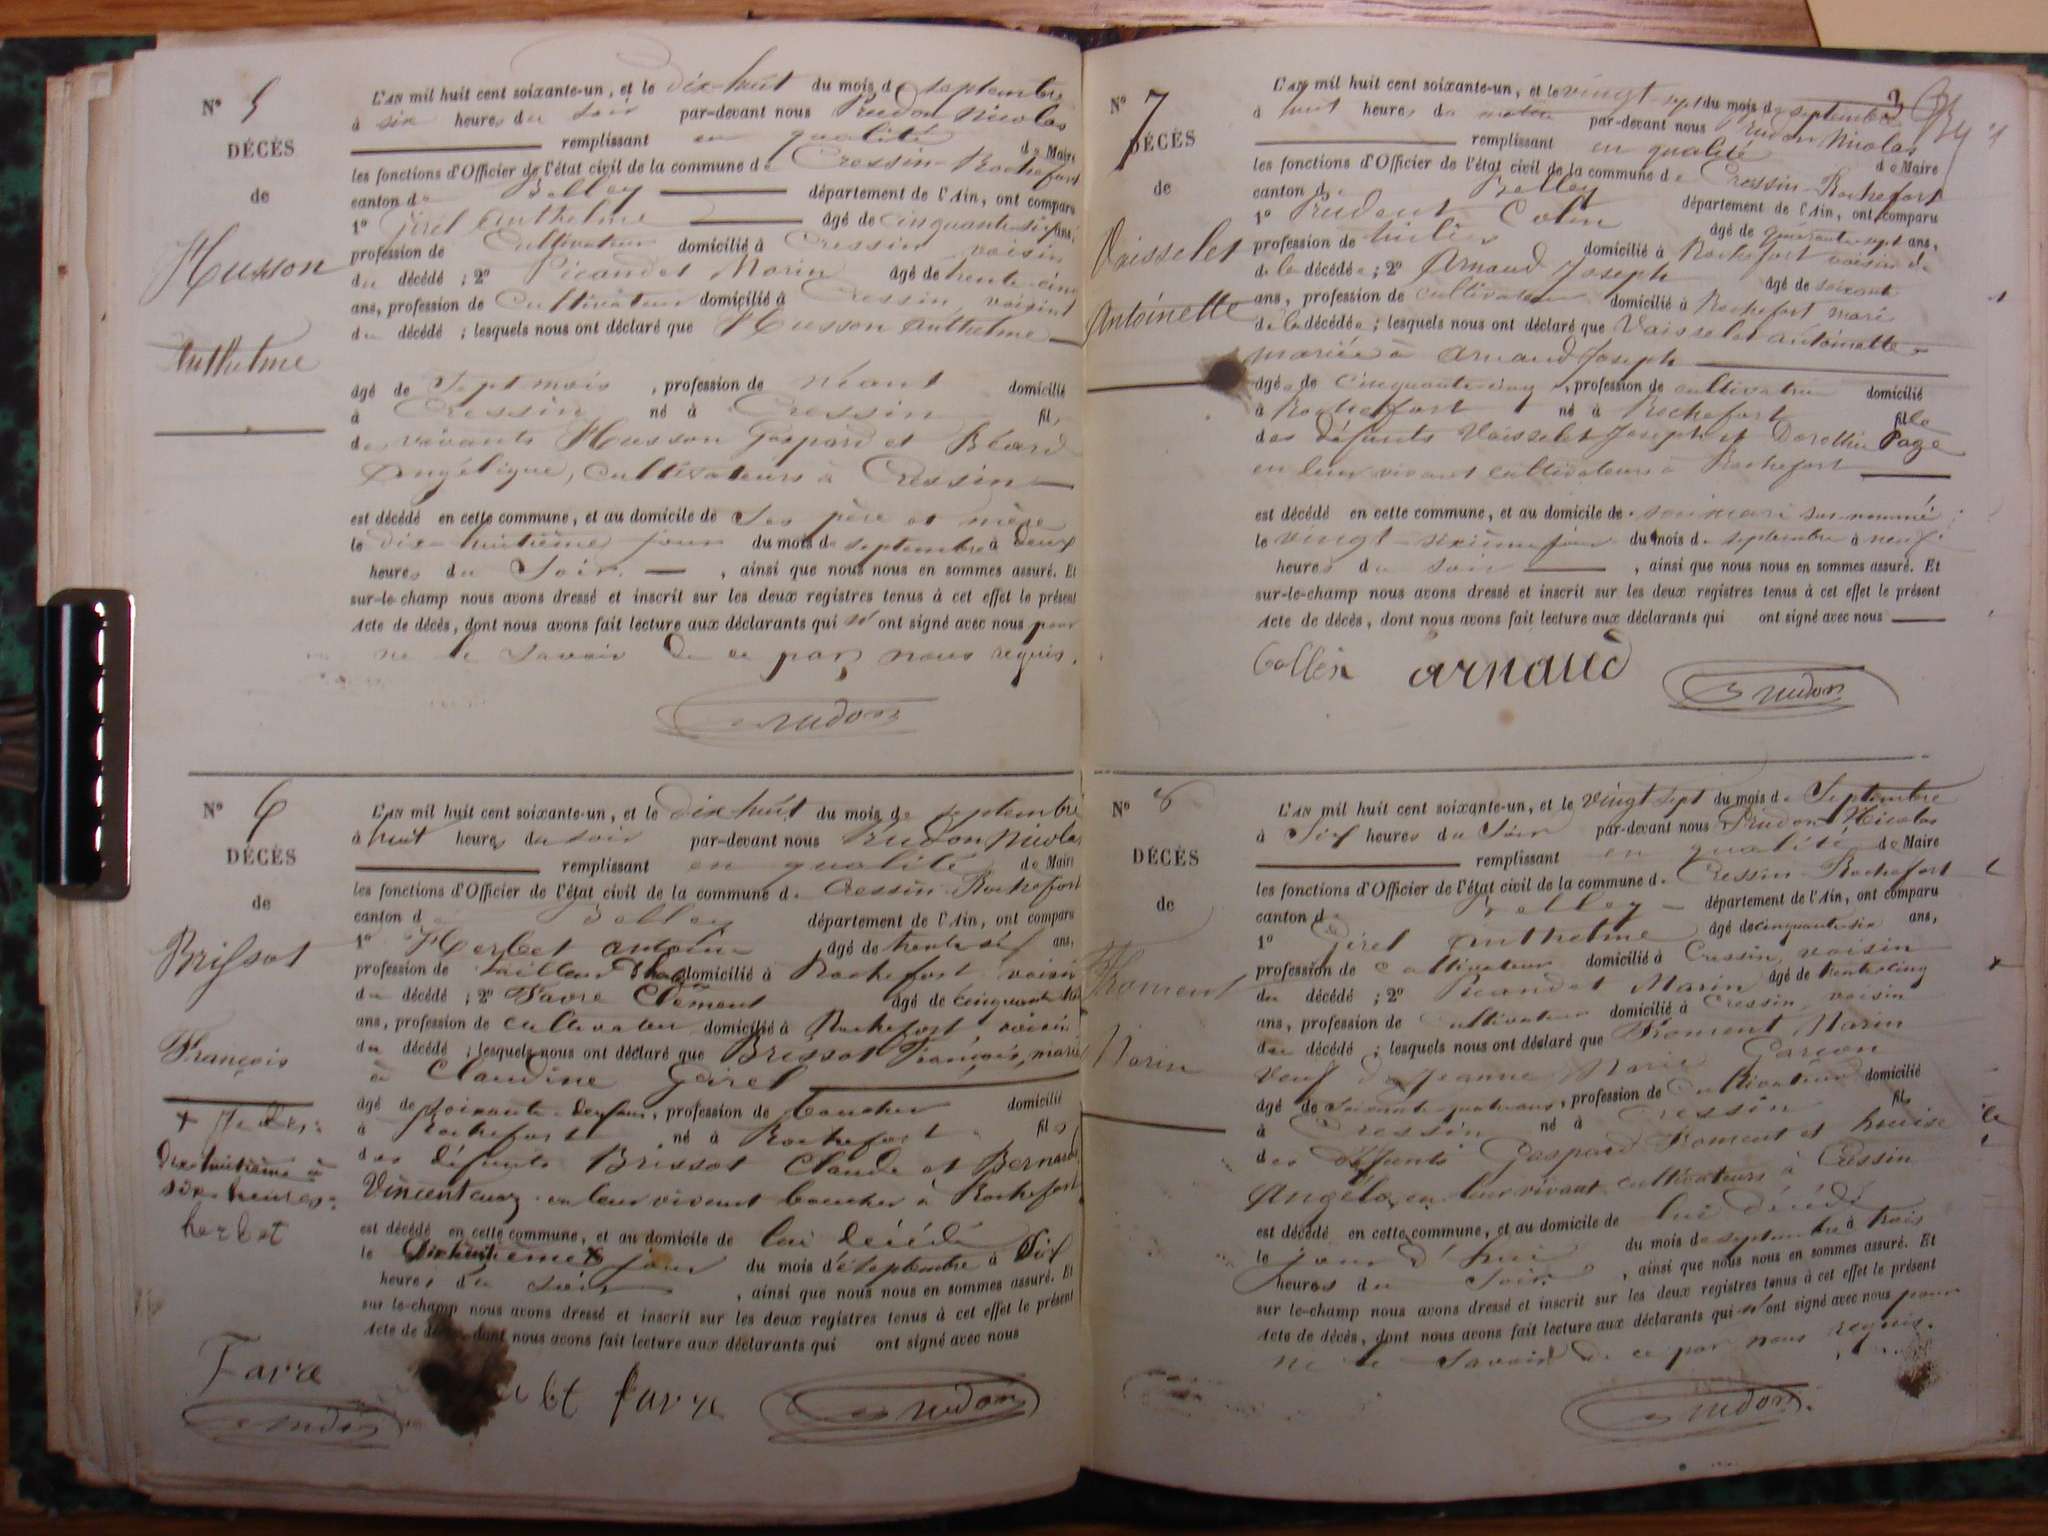 N° 5
DÉCÈS
de
Husson
Anthelme
L'AN mil huit cent soixante-un, et le dix-huit du mois de septembre
à six heures du soir par-devant nous Prudon Nicolas
remplissant en qualité de Maire
les fonctions d'Officier de l'état civil de la commune de Cressin-Rochefort
canton de Belley département de l'Ain, ont comparu
1° Girel Anthelme âgé de cinquante-six ans,
profession de Cultivateur domicilié à Cressin voisin
du décédé ; 2° Picandet Marin âgé de trente-cinq
ans, profession de Cultivateur domicilié à Cressin, voisin
du décédé ; lesquels nous ont déclaré que Husson Anthelme
âgé de Sept mois , profession de néant domicilié
à Cressin né à Cressin fils
de vivants Husson Gaspard et Béard
Angélique, cultivateurs à Cressin
est décédé en cette commune, et au domicile de ses père et mère
le dix-huitième jour du mois de septembre à deux
heures du Soir. , ainsi que nous nous en sommes assuré. Et
sur-le-champ nous avons dressé et inscrit sur les deux registres tenus à cet effet le présent
Acte de décès, dont nous avons fait lecture aux déclarants qui n' ont signé avec nous pour
ne le savoir de ce par nous requis.
Prudon
N° 6
DÉCÈS
de
Brissot
François
dixhuitième à
six heures.
herbet
L'AN mil huit cent soixante-un, et le dix huit du mois de septembre
à huit heures du soir par-devant nous Prudon Nicolas
remplissant en qualité de Maire
les fonctions d'Officier de l'état civil de la commune de Cressin-Rochefort
canton de Belley département de l'Ain, ont comparu
1° Herbet Antoine âgé de trente six ans,
profession de tailleur domicilié à Rochefort voisin
du décédé ; 2° Favre Clément âgé de cinquante
ans, profession de cultivateur domicilié à Rochefort voisin
du décédé ; lesquels nous ont déclaré que Brissot François, mari
à Claudine Girel
âgé de soixante-deux ans, profession de boucher domicilié
à Rochefort né à Rochefort fils
des défunts Brissot Claude et Bernard
en leur vivant boucher à Rochefort
est décédé en cette commune, et au domicile de lui décédé
le Dixhuitième jour du mois de septembre à Six
heures du soir , ainsi que nous nous en sommes assuré. Et
sur-le-champ nous avons dressé et inscrit sur les deux registres tenus à cet effet le présent
Acte de décès, dont nous avons fait lecture aux déclarants qui ont signé avec nous
Favre
Prudon
favre
Prudon
N° 7
DÉCÈS
de
Vaisselet
Antoinette
L'AN mil huit cent soixante-un, et le vingt-sept du mois de septembre
à huit heures du matin par-devant nous Prudon Nicolas
remplissant en qualité de Maire
les fonctions d'Officier de l'état civil de la commune de Cressin-Rochefort
canton de Belley département de l'Ain, ont comparu
1° Prudent Colin âgé de quarante-sept ans,
profession de tuilier domicilié à Rochefort voisin de
de la décédée ; 2° Arnaud Joseph âgé de soixante
ans, profession de cultivateur domicilié à Rochefort mari
de la décédée ; lesquels nous ont déclaré que Vaisselet Antoinette
mariée à Arnaud Joseph
âgée de cinquante-cinq , profession de cultivatrice domicilié
à Rochefort né à Rochefort fille
des défunts Vaisselet Joseph et Dorothée Page
en leur vivant cultivateurs à Rochefort
est décédé en cette commune, et au domicile de son mari sus-nommé
le vingt-sixième jour du mois de septembre à neuf
heures du soir , ainsi que nous nous en sommes assuré. Et
sur-le-champ nous avons dressé et inscrit sur les deux registres tenus à cet effet le présent
Acte de décès, dont nous avons fait lecture aux déclarants qui ont signé avec nous
Collin arnaud Prudon
N° 8
DÉCÈS
de
Froment
Marin
L'AN mil huit cent soixante-un, et le vingt sept du mois de Septembre
à Six heures du Soir par-devant nous Prudon Nicolas
remplissant en qualité de Maire
les fonctions d'Officier de l'état civil de la commune de Cressin-Rochefort
canton de Belley département de l'Ain, ont comparu
1° Girel Anthelme âgé de cinquante-six ans,
profession de cultivateur domicilié à Cressin, voisin
du décédé ; 2° Picandet Marin âgé de trente-cinq
ans, profession de cultivateur domicilié à Cressin, voisin
du décédé ; lesquels nous ont déclaré que Froment Marin
veuf de Jeanne Marie Garçon
âgé de soixante-quatre ans, profession de Cultivateur domicilié
à Cressin né à Cressin fils
des défunts Gaspard Froment et Louise
en leur vivant cultivateurs à Cressin
est décédé en cette commune, et au domicile de lui décédé
le jour d'hui du mois de septembre à trois
heures du Soir , ainsi que nous nous en sommes assuré. Et
sur-le-champ nous avons dressé et inscrit sur les deux registres tenus à cet effet le présent
Acte de décès, dont nous avons fait lecture aux déclarants qui n' ont signé avec nous pour
ne le savoir de ce par nous requis.
Prudon